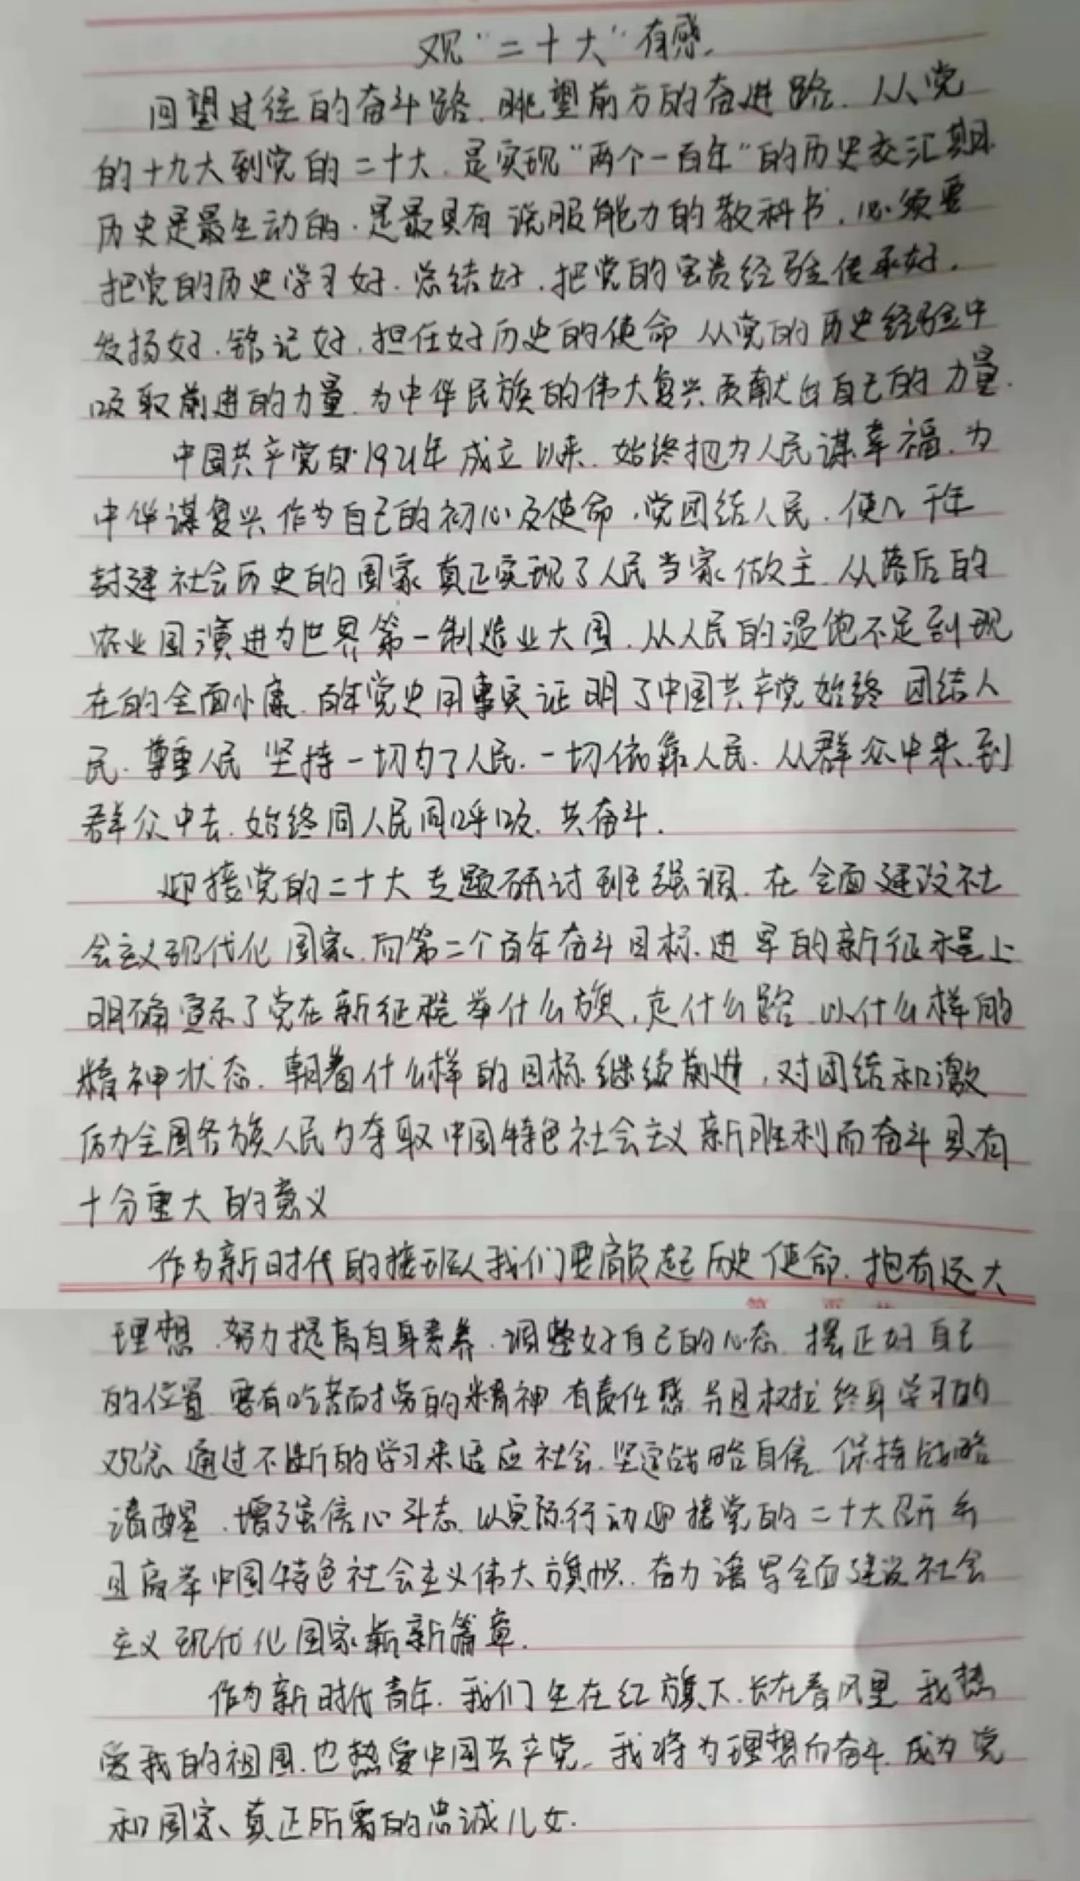 观“二十大”有感.
回望过往的奋斗路.眺望前方的奋进路.从党
的十九大到党的二十大.是实现“两个一百年”的历史交汇期.
历史是最生动的.是最具有说服能力的教科书.必须要
把党的历史学习好.总结好.把党的宝贵经验传承好.
发扬好.铭记好.担任好历史的使命 从党的历史经验中
吸取前进的力量.为中华民族的伟大复兴贡献出自己的力量.
中国共产党自1921年成立以来.始终把为人民谋幸福.为
中华谋复兴作为自己的初心及使命.党团结人民.使几千年
封建社会历史的国家真正实现了人民当家做主.从落后的
农业国演进为世界第一制造业大国.从人民的温饱不足到现
在的全面小康.百年党史用事实证明了中国共产党始终团结人
民.尊重人民 坚持一切为了人民.一切依靠人民.从群众中来.到
群众中去.始终同人民同呼吸.共奋斗.
迎接党的二十大专题研讨班强调.在全面建设社
会主义现代化国家.向第二个百年奋斗目标.进军的新征程上
明确宣示了党在新征程举什么旗,走什么路.以什么样的
精神状态.朝着什么样的目标继续前进,对团结和激
励全国各族人民为夺取中国特色社会主义新胜利而奋斗具有
十分重大的意义
作为新时代的接班人我们要肩负起历史使命.抱有远大
理想.努力提高自身素养.调整好自己的心态.摆正好自己
的位置 要有吃苦耐劳的精神 有责任感 并且树立终身学习的
观念 通过不断的学习来适应社会.坚定战略自信 保持战略
清醒.增强信心斗志.以实际行动迎接党的二十大召开 并
且高举中国特色社会主义伟大旗帜.奋力谱写全面建设社会
主义现代化国家崭新篇章.
作为新时代青年.我们生在红旗下.长在春风里 我热
爱我的祖国.也热爱中国共产党.我将为理想而奋斗.成为党
和国家、真正所需的忠诚儿女.